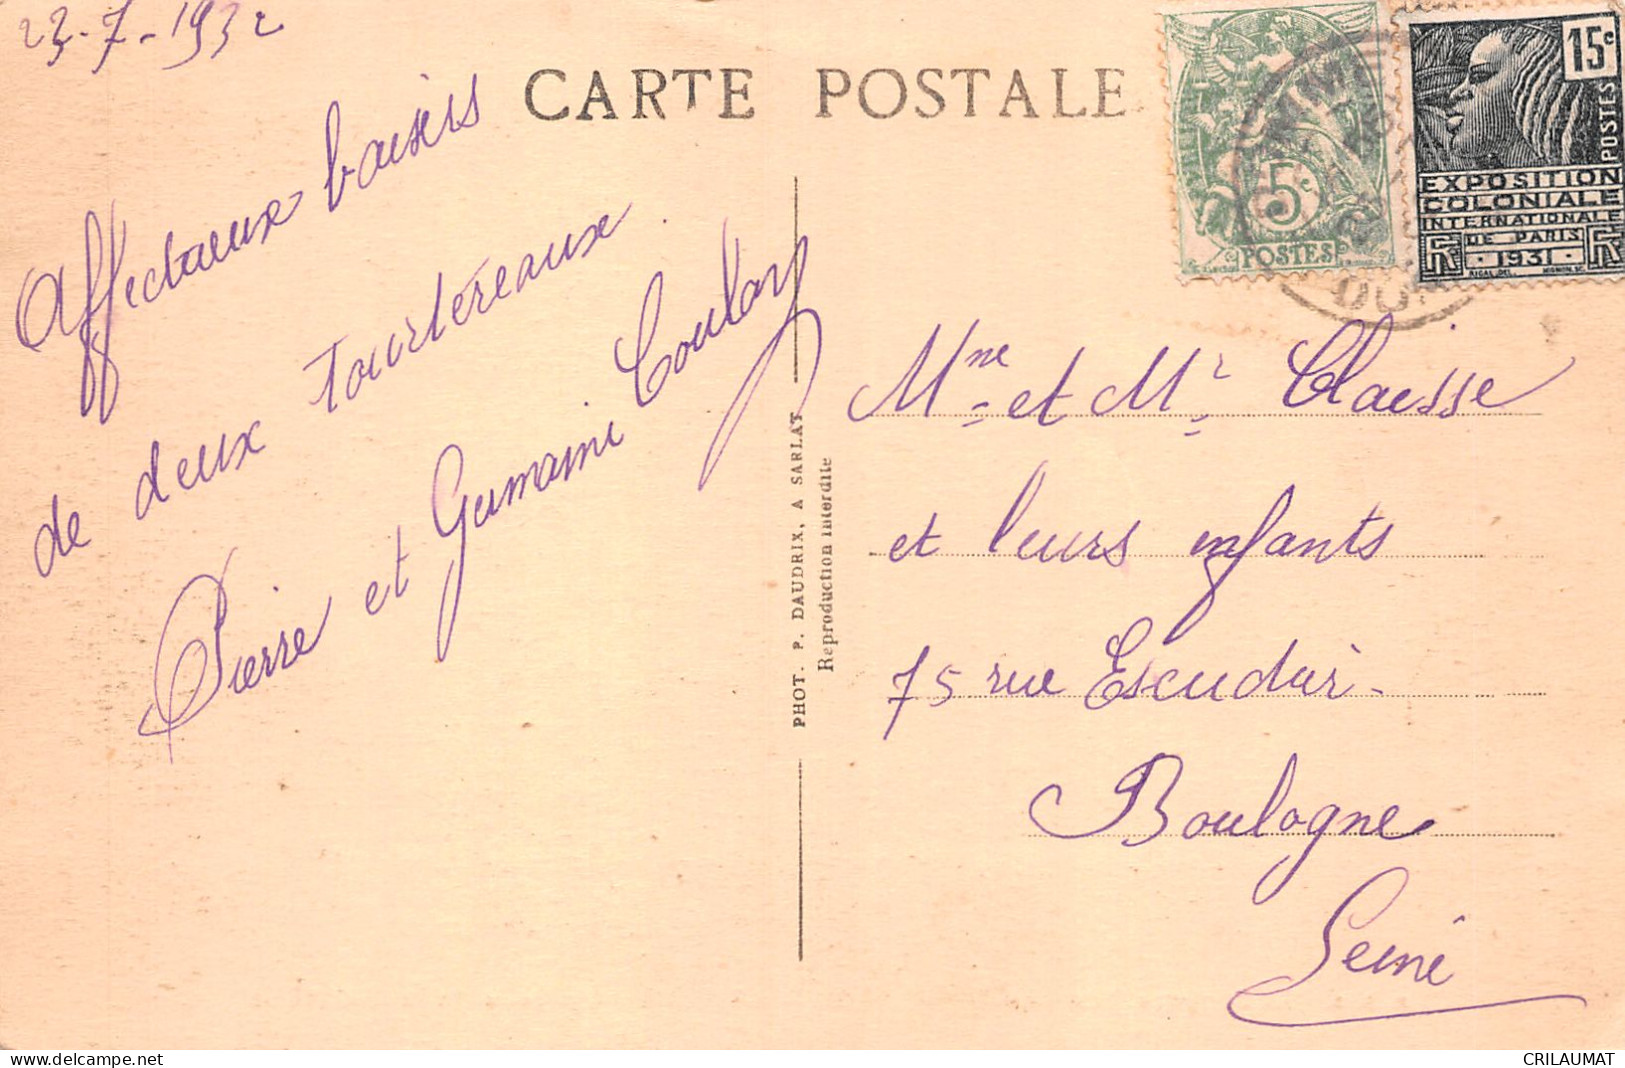 23-7-1932
CARTE POSTALE
Affectueux baisers
de deux tourtereaux.
Pierre et Germaine Coulary
PHOT. P. DAUDRIX, A SARLAT
Reproduction interdite
5c
POSTES
15c
POSTES
EXPOSITION
COLONIALE
INTERNATIONALE
DE PARIS
RF 1931 RF
Mme et Mr Claisse
et leurs enfants
75 rue Escudier
Boulogne
Seine
www.delcampe.net
CRILAUMAT